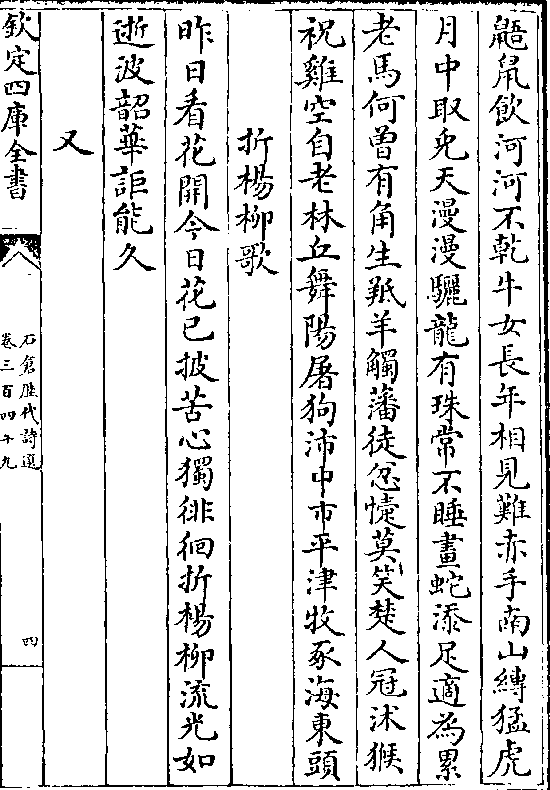 鼯鼠飲河河不乾牛女長年相見難赤手南山縛猛虎
月中取兎天漫漫驪龍有珠常不睡畫蛇添足適為累
老馬何曽有角生羝羊觸藩徒忿懥莫笑楚人冠沐猴
祝雞空自老林丘舞陽屠狗沛中市平津牧豕海東頭
折楊柳歌
昨日看花開今日花已披苦心獨徘徊折楊柳流光如
逝波韶華詎能久
又
欽定四庫全書
石倉歴代詩選
卷三百四十九
四